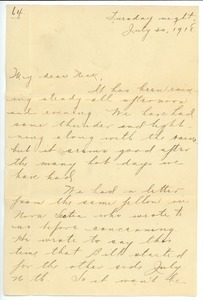 Tuesday night.
July 30, 1918
My dear
It has been rain-
ing steady all afternoon
and evening. We have had
some thunder and light-
ning along with the rain
but it seems good after
the many hot days we
have had.
We had a letter
from the same fellow in
Nova Scotia who wrote to
us before concerning
He wrote to say this
time that Bill started
for the other side July
th. So it won't be